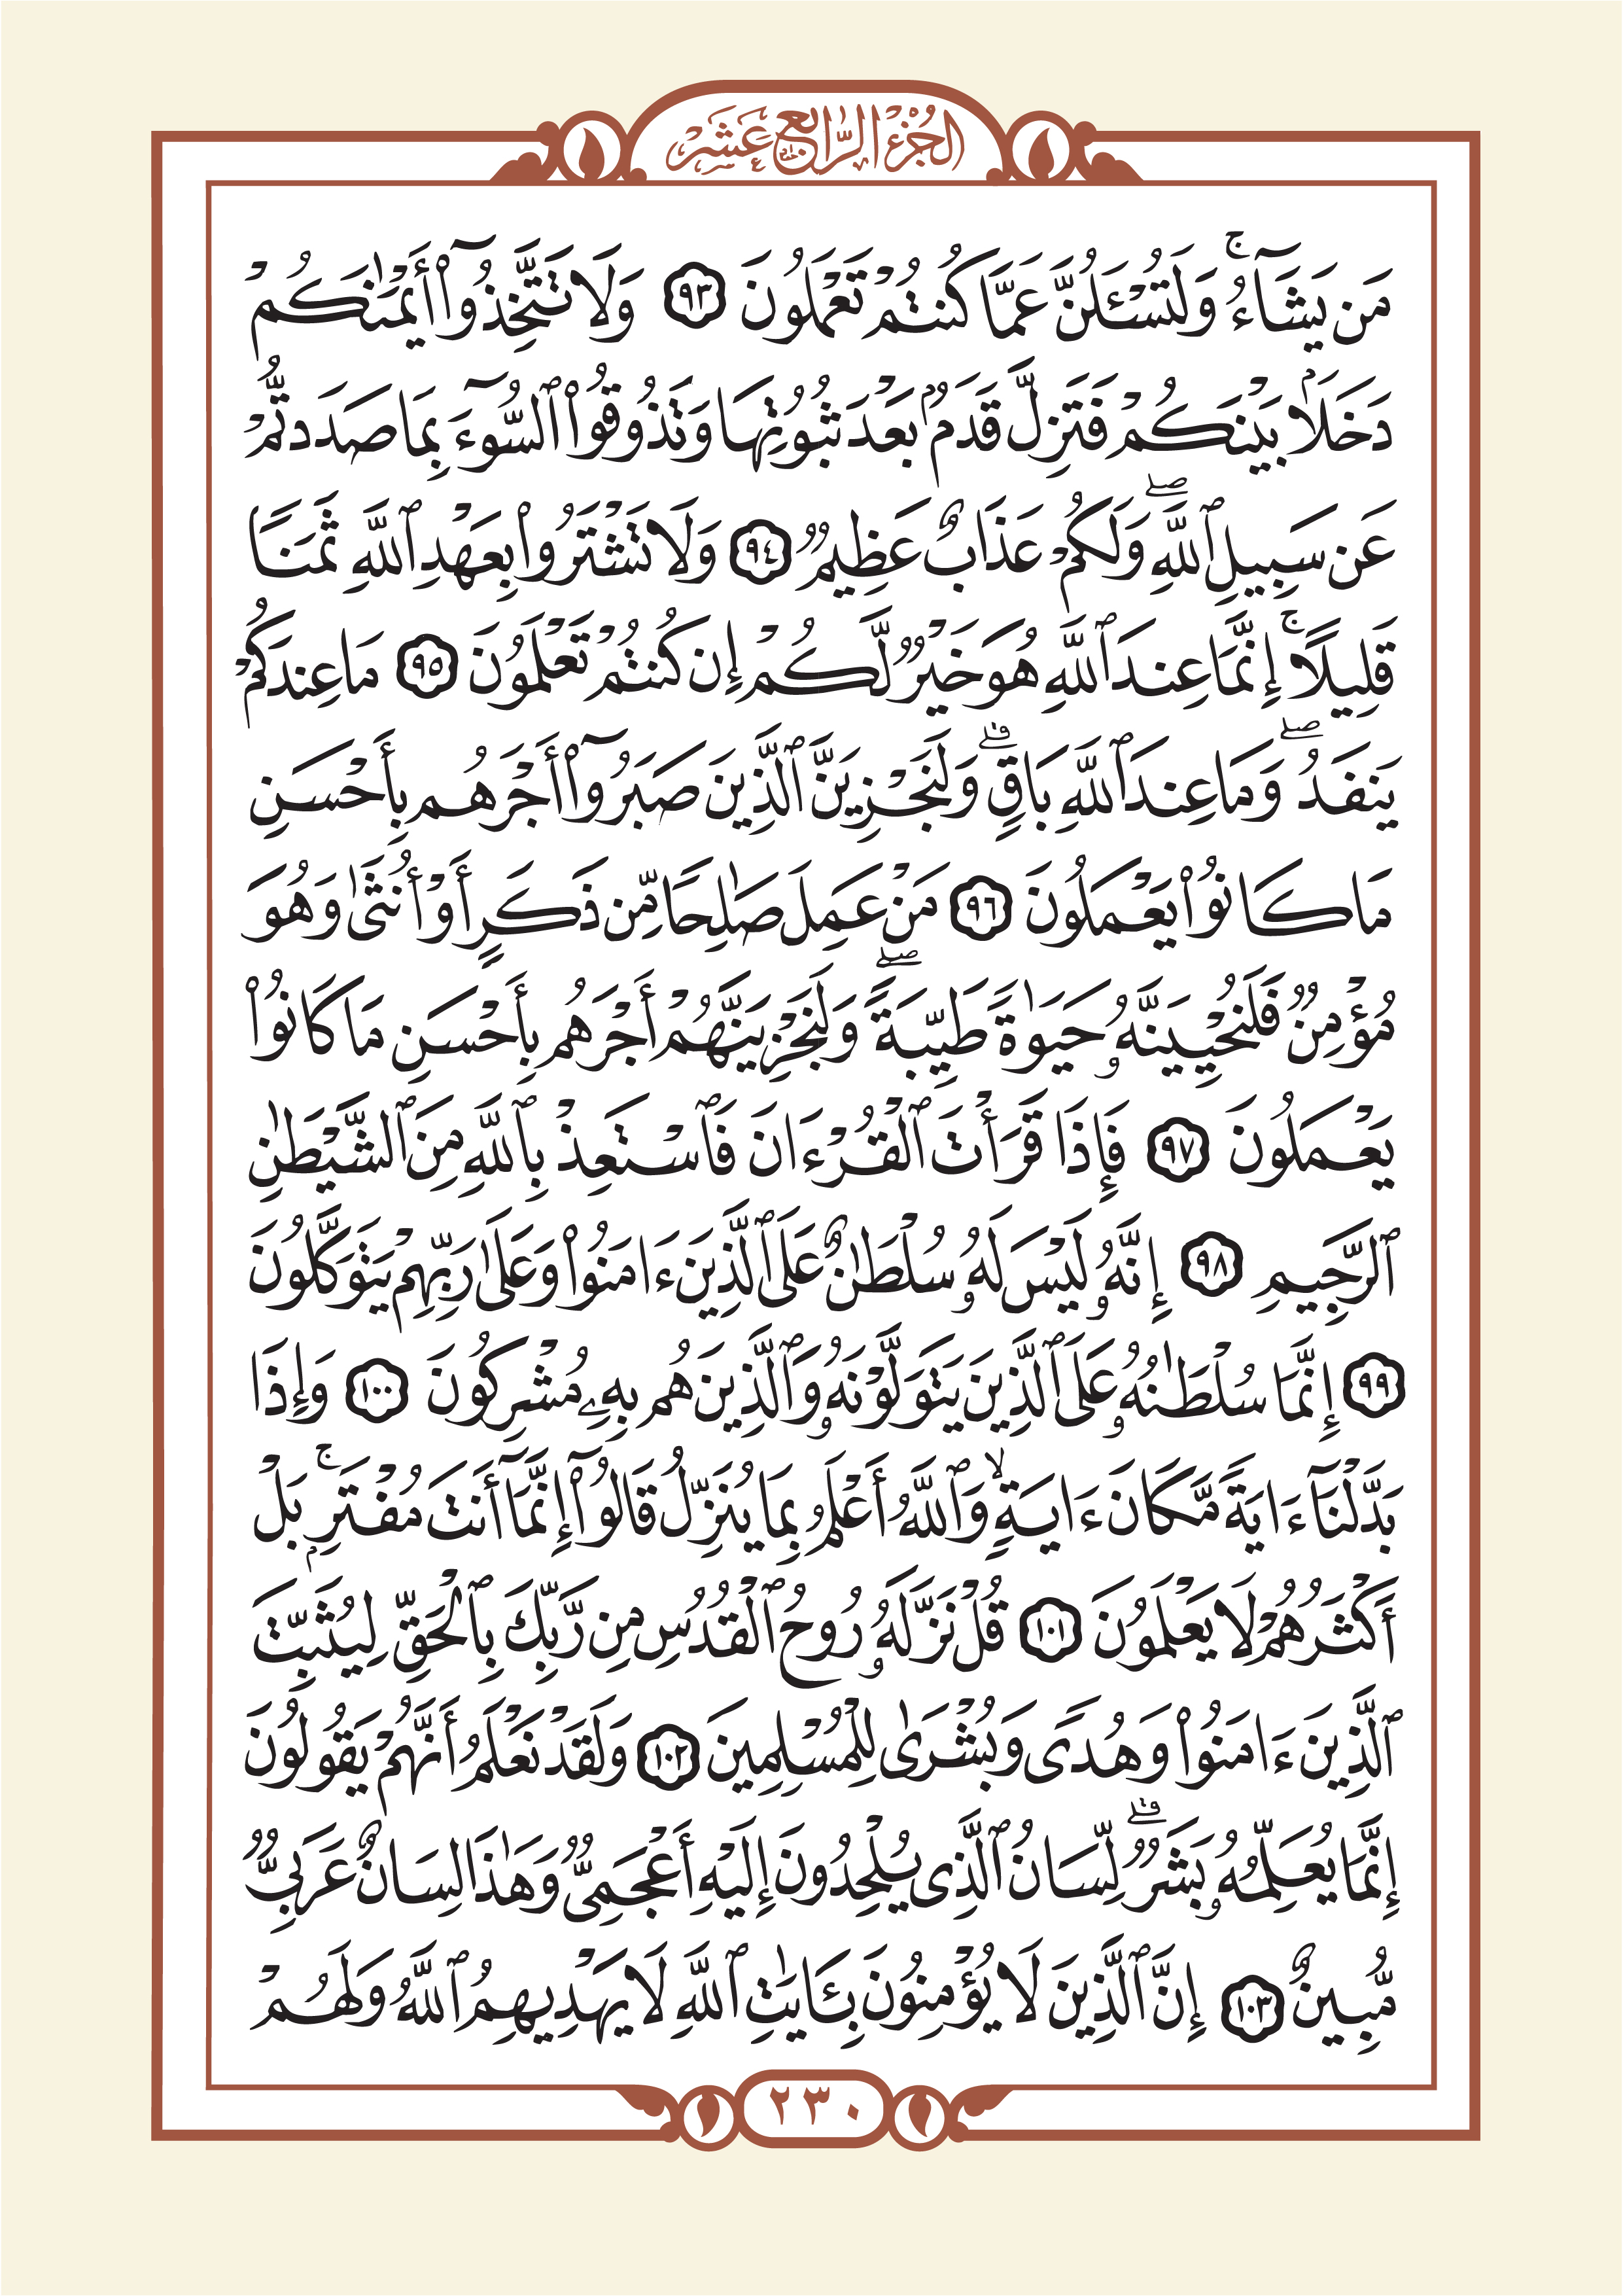 الجزء الرابع عشر
مَن يَشَآءُ ۚ وَلَتُسْـَٔلُنَّ عَمَّا كُنتُمْ تَعْمَلُونَ ٩٣ وَلَا تَتَّخِذُوٓا۟ أَيْمَـٰنَكُمْ
دَخَلًۢا بَيْنَكُمْ فَتَزِلَّ قَدَمٌۢ بَعْدَ ثُبُوتِهَا وَتَذُوقُوا۟ ٱلسُّوٓءَ بِمَا صَدَدتُّمْ
عَن سَبِيلِ ٱللَّهِ ۖ وَلَكُمْ عَذَابٌ عَظِيمٌ ٩٤ وَلَا تَشْتَرُوا۟ بِعَهْدِ ٱللَّهِ ثَمَنًا
قَلِيلًا ۚ إِنَّمَا عِندَ ٱللَّهِ هُوَ خَيْرٌ لَّكُمْ إِن كُنتُمْ تَعْلَمُونَ ٩٥ مَا عِندَكُمْ
يَنفَدُ ۖ وَمَا عِندَ ٱللَّهِ بَاقٍ ۗ وَلَنَجْزِيَنَّ ٱلَّذِينَ صَبَرُوٓا۟ أَجْرَهُم بِأَحْسَنِ
مَا كَانُوا۟ يَعْمَلُونَ ٩٦ مَنْ عَمِلَ صَـٰلِحًا مِّن ذَكَرٍ أَوْ أُنثَىٰ وَهُوَ
مُؤْمِنٌ فَلَنُحْيِيَنَّهُۥ حَيَوٰةً طَيِّبَةً ۖ وَلَنَجْزِيَنَّهُمْ أَجْرَهُم بِأَحْسَنِ مَا كَانُوا۟
يَعْمَلُونَ ٩٧ فَإِذَا قَرَأْتَ ٱلْقُرْءَانَ فَٱسْتَعِذْ بِٱللَّهِ مِنَ ٱلشَّيْطَـٰنِ
ٱلرَّجِيمِ ٩٨ إِنَّهُۥ لَيْسَ لَهُۥ سُلْطَـٰنٌ عَلَى ٱلَّذِينَ ءَامَنُوا۟ وَعَلَىٰ رَبِّهِمْ يَتَوَكَّلُونَ
٩٩ إِنَّمَا سُلْطَـٰنُهُۥ عَلَى ٱلَّذِينَ يَتَوَلَّوْنَهُۥ وَٱلَّذِينَ هُم بِهِۦ مُشْرِكُونَ ١٠٠ وَإِذَا
بَدَّلْنَآ ءَايَةً مَّكَانَ ءَايَةٍ ۙ وَٱللَّهُ أَعْلَمُ بِمَا يُنَزِّلُ قَالُوٓا۟ إِنَّمَآ أَنتَ مُفْتَرٍۭ ۚ بَلْ
أَكْثَرُهُمْ لَا يَعْلَمُونَ ١٠١ قُلْ نَزَّلَهُۥ رُوحُ ٱلْقُدُسِ مِن رَّبِّكَ بِٱلْحَقِّ لِيُثَبِّتَ
ٱلَّذِينَ ءَامَنُوا۟ وَهُدًى وَبُشْرَىٰ لِلْمُسْلِمِينَ ١٠٢ وَلَقَدْ نَعْلَمُ أَنَّهُمْ يَقُولُونَ
إِنَّمَا يُعَلِّمُهُۥ بَشَرٌ ۗ لِّسَانُ ٱلَّذِى يُلْحِدُونَ إِلَيْهِ أَعْجَمِىٌّ وَهَـٰذَا لِسَانٌ عَرَبِىٌّ
مُّبِينٌ ١٠٣ إِنَّ ٱلَّذِينَ لَا يُؤْمِنُونَ بِـَٔايَـٰتِ ٱللَّهِ لَا يَهْدِيهِمُ ٱللَّهُ وَلَهُمْ
٢٣٠